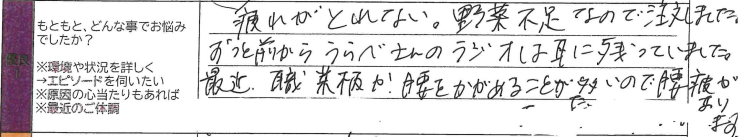 もともと、どんな事でお悩み
でしたか?
※環境や状況を詳しく
→エピソードを伺いたい
※原因の心当たりもあれば
※最近のご体調
疲れがとれてない。野菜不足なので注文しました。
ずっと前からうらべさんのラジオは耳に残っていました。
最近、職業柄か、腰をかがめることが多いので腰疲が
あり
ます